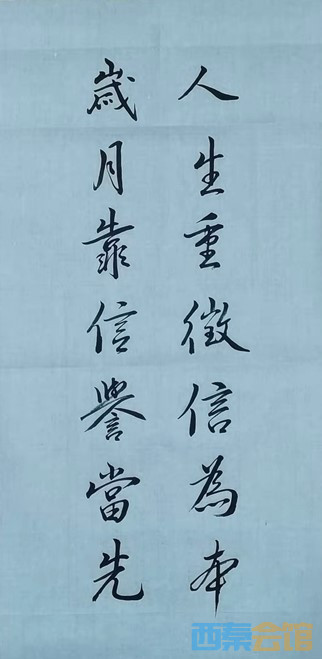 人生重徵信為本
歲月靠信譽當先
西秦会馆